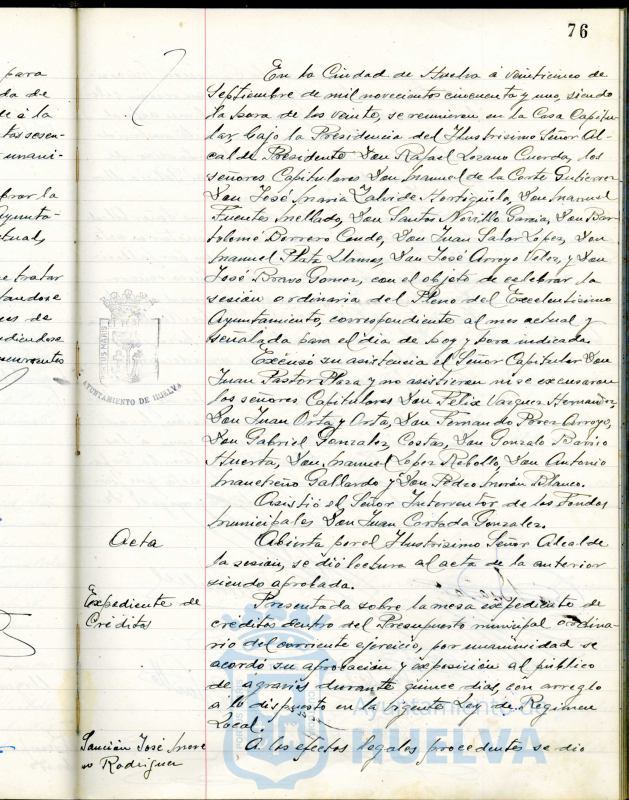 76
para
da de
de á la
tos sesen-
unani-
brar la
Ayunta-
ctual,
tratar
tandose
es de
ndiendose
ncurrentes
PORTUS MARIS
AYUNTAMIENTO DE HUELVA
En la Ciudad de Huelva á veinticinco de
Septiembre de mil novecientos cincuenta y uno, siendo
la hora de las veinte, se reunieron en la Casa Capitu-
lar, bajo la Presidencia del Ilustrisimo Señor Al-
calde Presidente Don Rafael Lozano Cuerda, los
señores Capitulares Don Manuel de la Corte Gutierrez
Don José Maria Zalvide Hortigüela, Don Manuel
Fuentes Mellado, Don Santos Novillo Garcia, Don Bar-
tolomé Borrero Conde, Don Juan Salar Lopez, Don
Manuel Plata Llamas, Don José Arroyo Velez, y Don
José Bravo Gomez, con el objeto de celebrar la
sesión ordinaria del Pleno del Excelentisimo
Ayuntamiento, correspondiente al mes actual y
señalada para el dia de hoy y hora indicada.
Excusó su asistencia el Señor Capitular Don
Juan Pastor Plaza y no asistieron ni se excusaron
los señores Capitulares Don Felix Vazquez Hernandez,
Don Juan Orta y Orta, Don Fernando Perez Arroyo,
Don Gabriel Gonzalez Costas, Don Gonzalo Barrio
Huerta, Don Manuel Lopez Rebollo, Don Antonio
Mancheño Gallardo y Don Pedro Morón Blanco.
Asistió el Señor Interventor de los Fondos
Municipales Don Juan Cortada Gonzalez.
Acta
Abierta por el Ilustrisimo Señor Alcalde
la sesión, se dió lectura al acta de la anterior
siendo aprobada.
Expediente de
Crédito
Presentada sobre la mesa expediente de
créditos dentro del Presupuesto municipal ordina-
rio del corriente ejercicio, por unanimidad se
acordó su aprobación y exposición al público
de agravios durante quince dias, con arreglo
a lo dispuesto en la vigente Ley de Régimen
Local.
Sanción José More-
no Rodriguez
A los efectos legales procedentes se dio
Ayuntamiento de
HUELVA